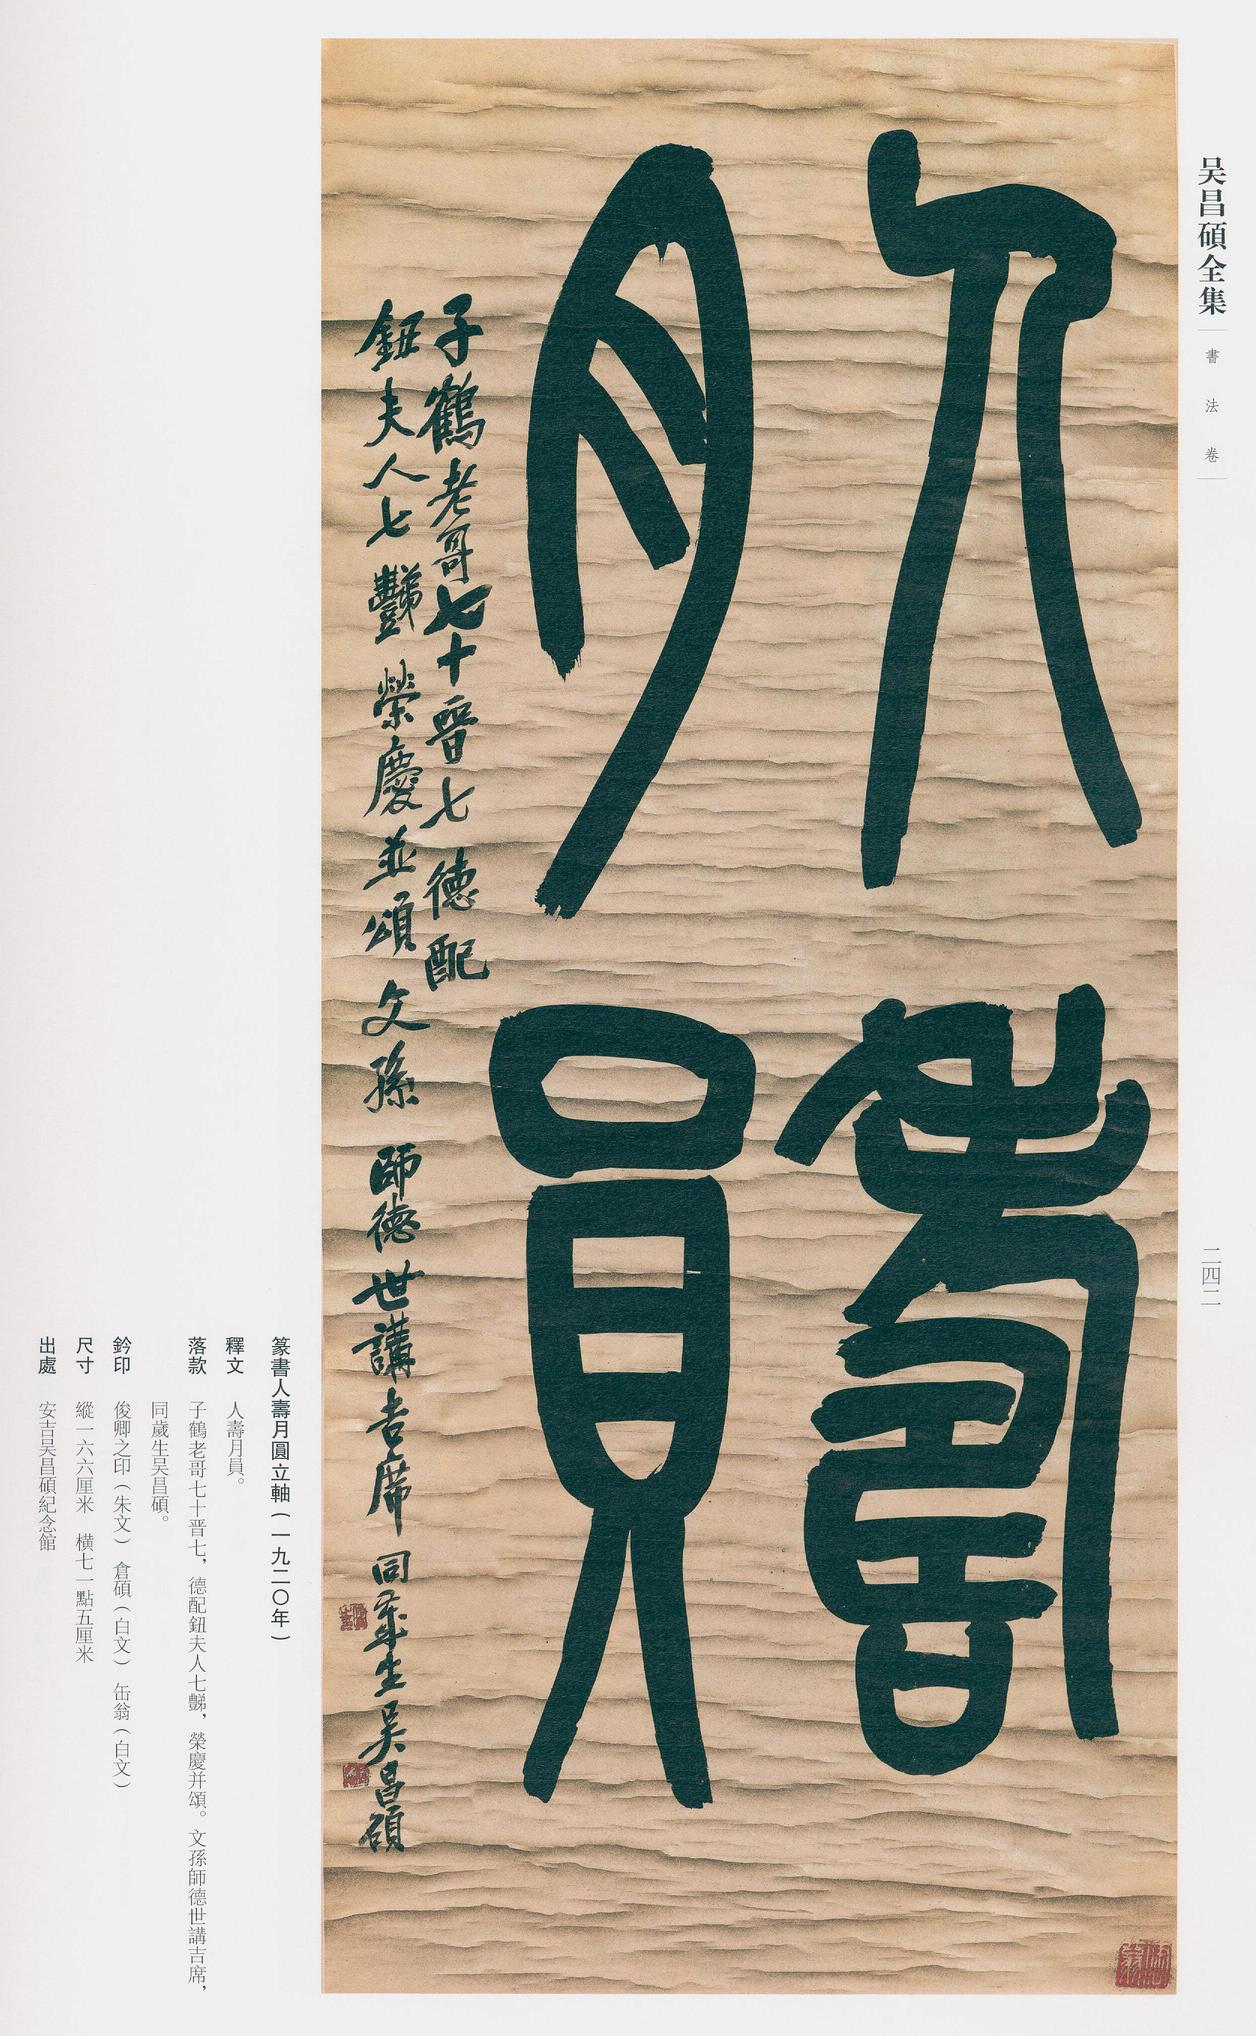 吴昌碩全集
書法卷
二四二
人壽
月員
子鶴老哥七十晉七德配
鈕夫人七豑榮慶並頌文孫師德世講吉席同歲生吴昌碩
篆書人壽月圓立軸（一九二〇年）
釋文　人壽月員。
落款　子鶴老哥七十晋七，德配鈕夫人七豑，榮慶并頌。文孫師德世講吉席，
同歲生吴昌碩。
鈐印　俊卿之印（朱文）　倉碩（白文）　缶翁（白文）
尺寸　縱一六六厘米　橫七一點五厘米
出處　安吉吴昌碩紀念館